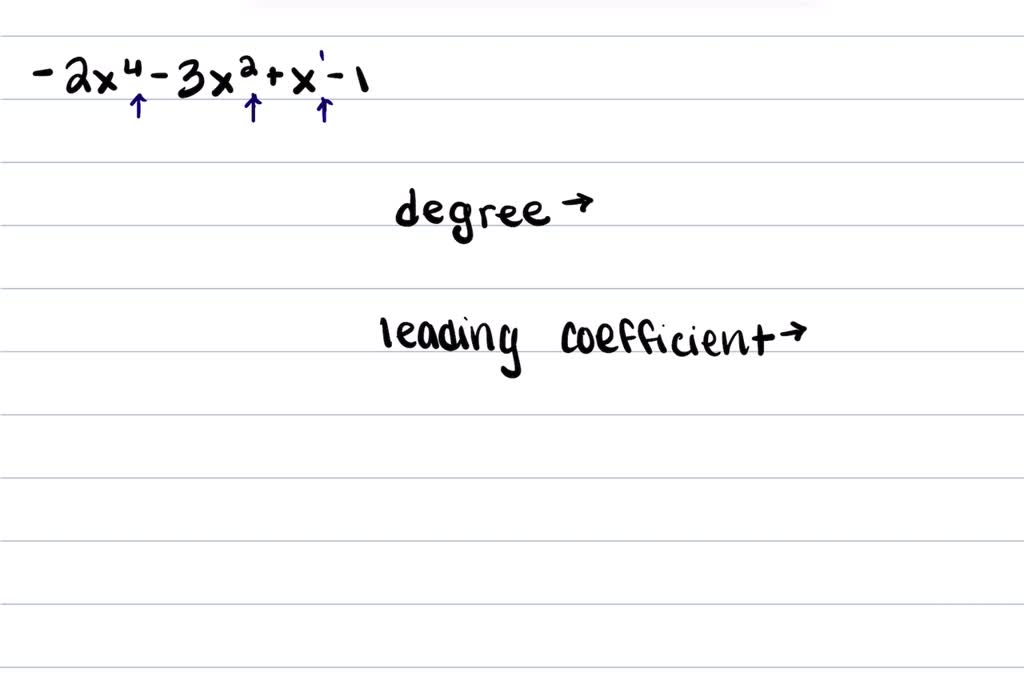 -2x⁴-3x²+x¹-1
↑ ↑ ↑
degree→
leading coefficient→